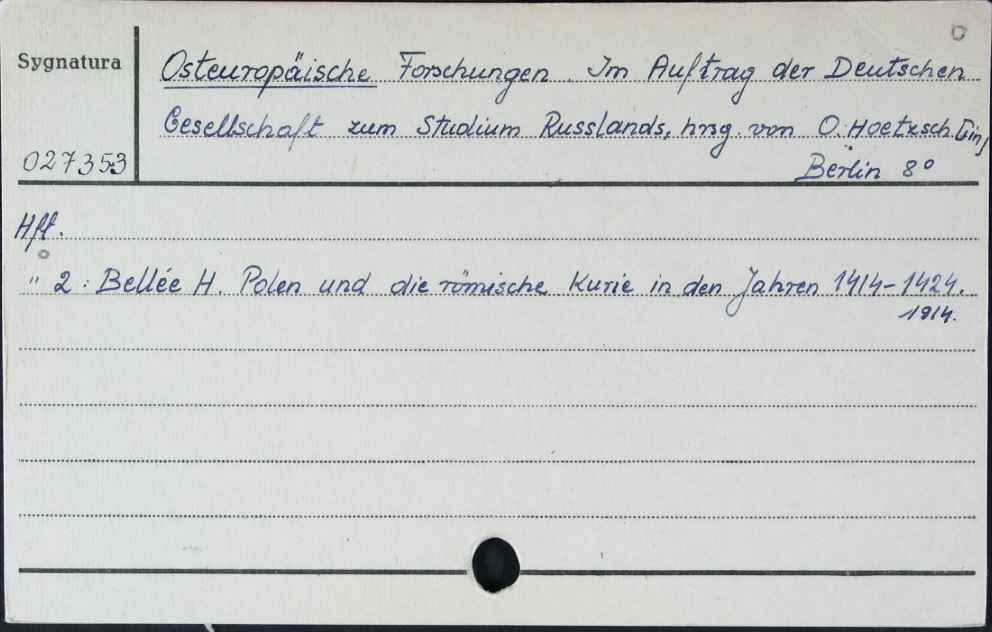 Sygnatura
Osteuropäische Forschungen. Im Auftrag der Deutschen
Gesellschaft zum Studium Russlands, hrsg. von O. Hoetzsch [in]
027353
Berlin 8°
Hft.
" 2: Bellée H. Polen und die römische Kurie in den Jahren 1414-1424.
1914.